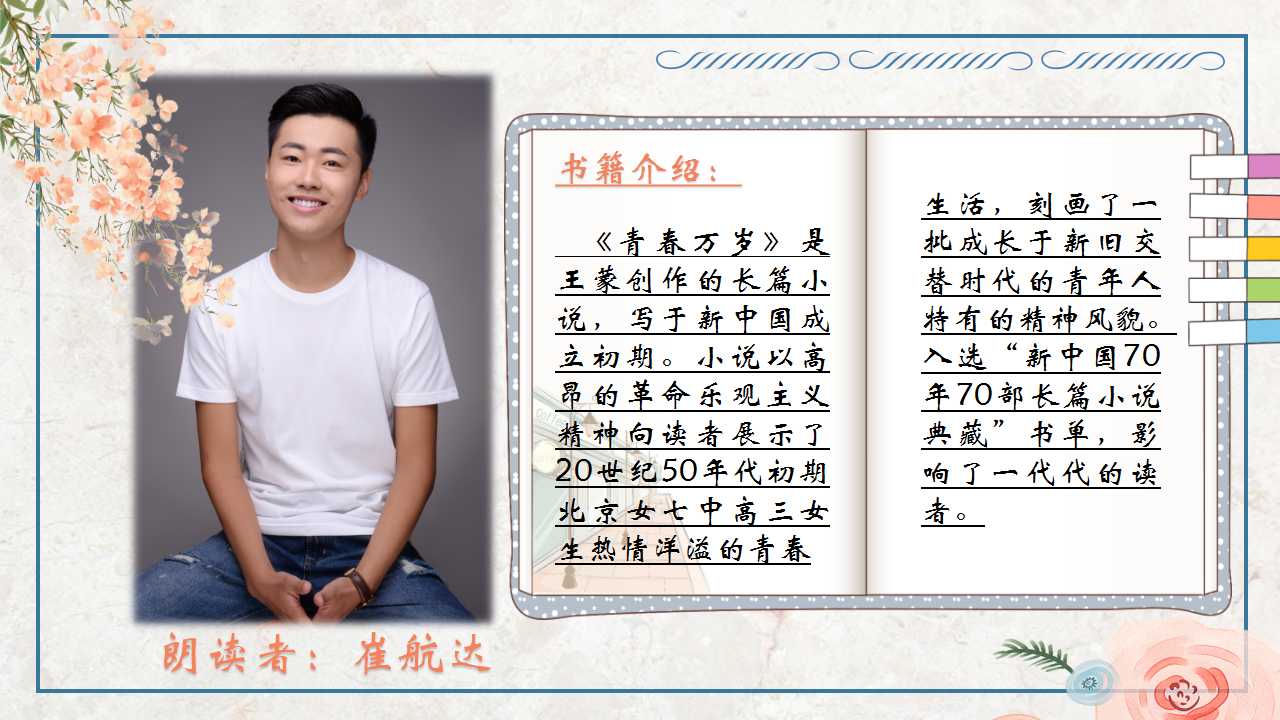 书籍介绍：
《青春万岁》是
王蒙创作的长篇小
说，写于新中国成
立初期。小说以高
昂的革命乐观主义
精神向读者展示了
20世纪50年代初期
北京女七中高三女
生热情洋溢的青春
生活，刻画了一
批成长于新旧交
替时代的青年人
特有的精神风貌。
入选“新中国70
年70部长篇小说
典藏”书单，影
响了一代代的读
者。
朗读者：崔航达